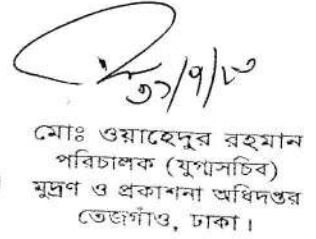 ৩১/৭/২৩
মোঃ ওয়াহেদুর রহমান
পরিচালক (যুগ্মসচিব)
মুদ্রণ ও প্রকাশনা অধিদপ্তর
তেজগাঁও, ঢাকা।